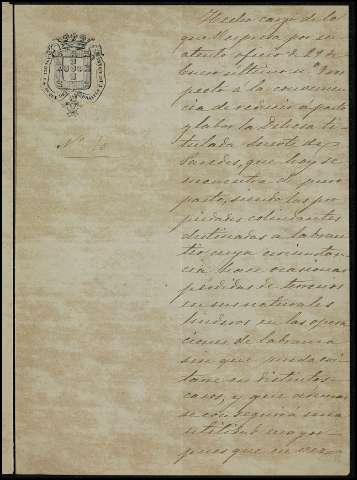 Nº 40
Hecho cargo de lo
que V. espeta por su
atento oficio de 29 de
Enero ultimo res-
pecto a la convenien-
cia de reducir a pasto
y labor la Dehesa ti-
tulada Suerte de
Paredes, que hoy se
encuentra de puro
pasto, siendo las pro-
piedades colindantes
destinadas a labran-
tio, cuya circunstan-
cia hace ocasionar
pérdidas de terrenos
en sus naturales
linderos en las opera-
ciones de labranza
sin que pueda evi-
tarse en distintos
casos, y que ademas
se conseguirá una
utilidad mayor
pues que en vez